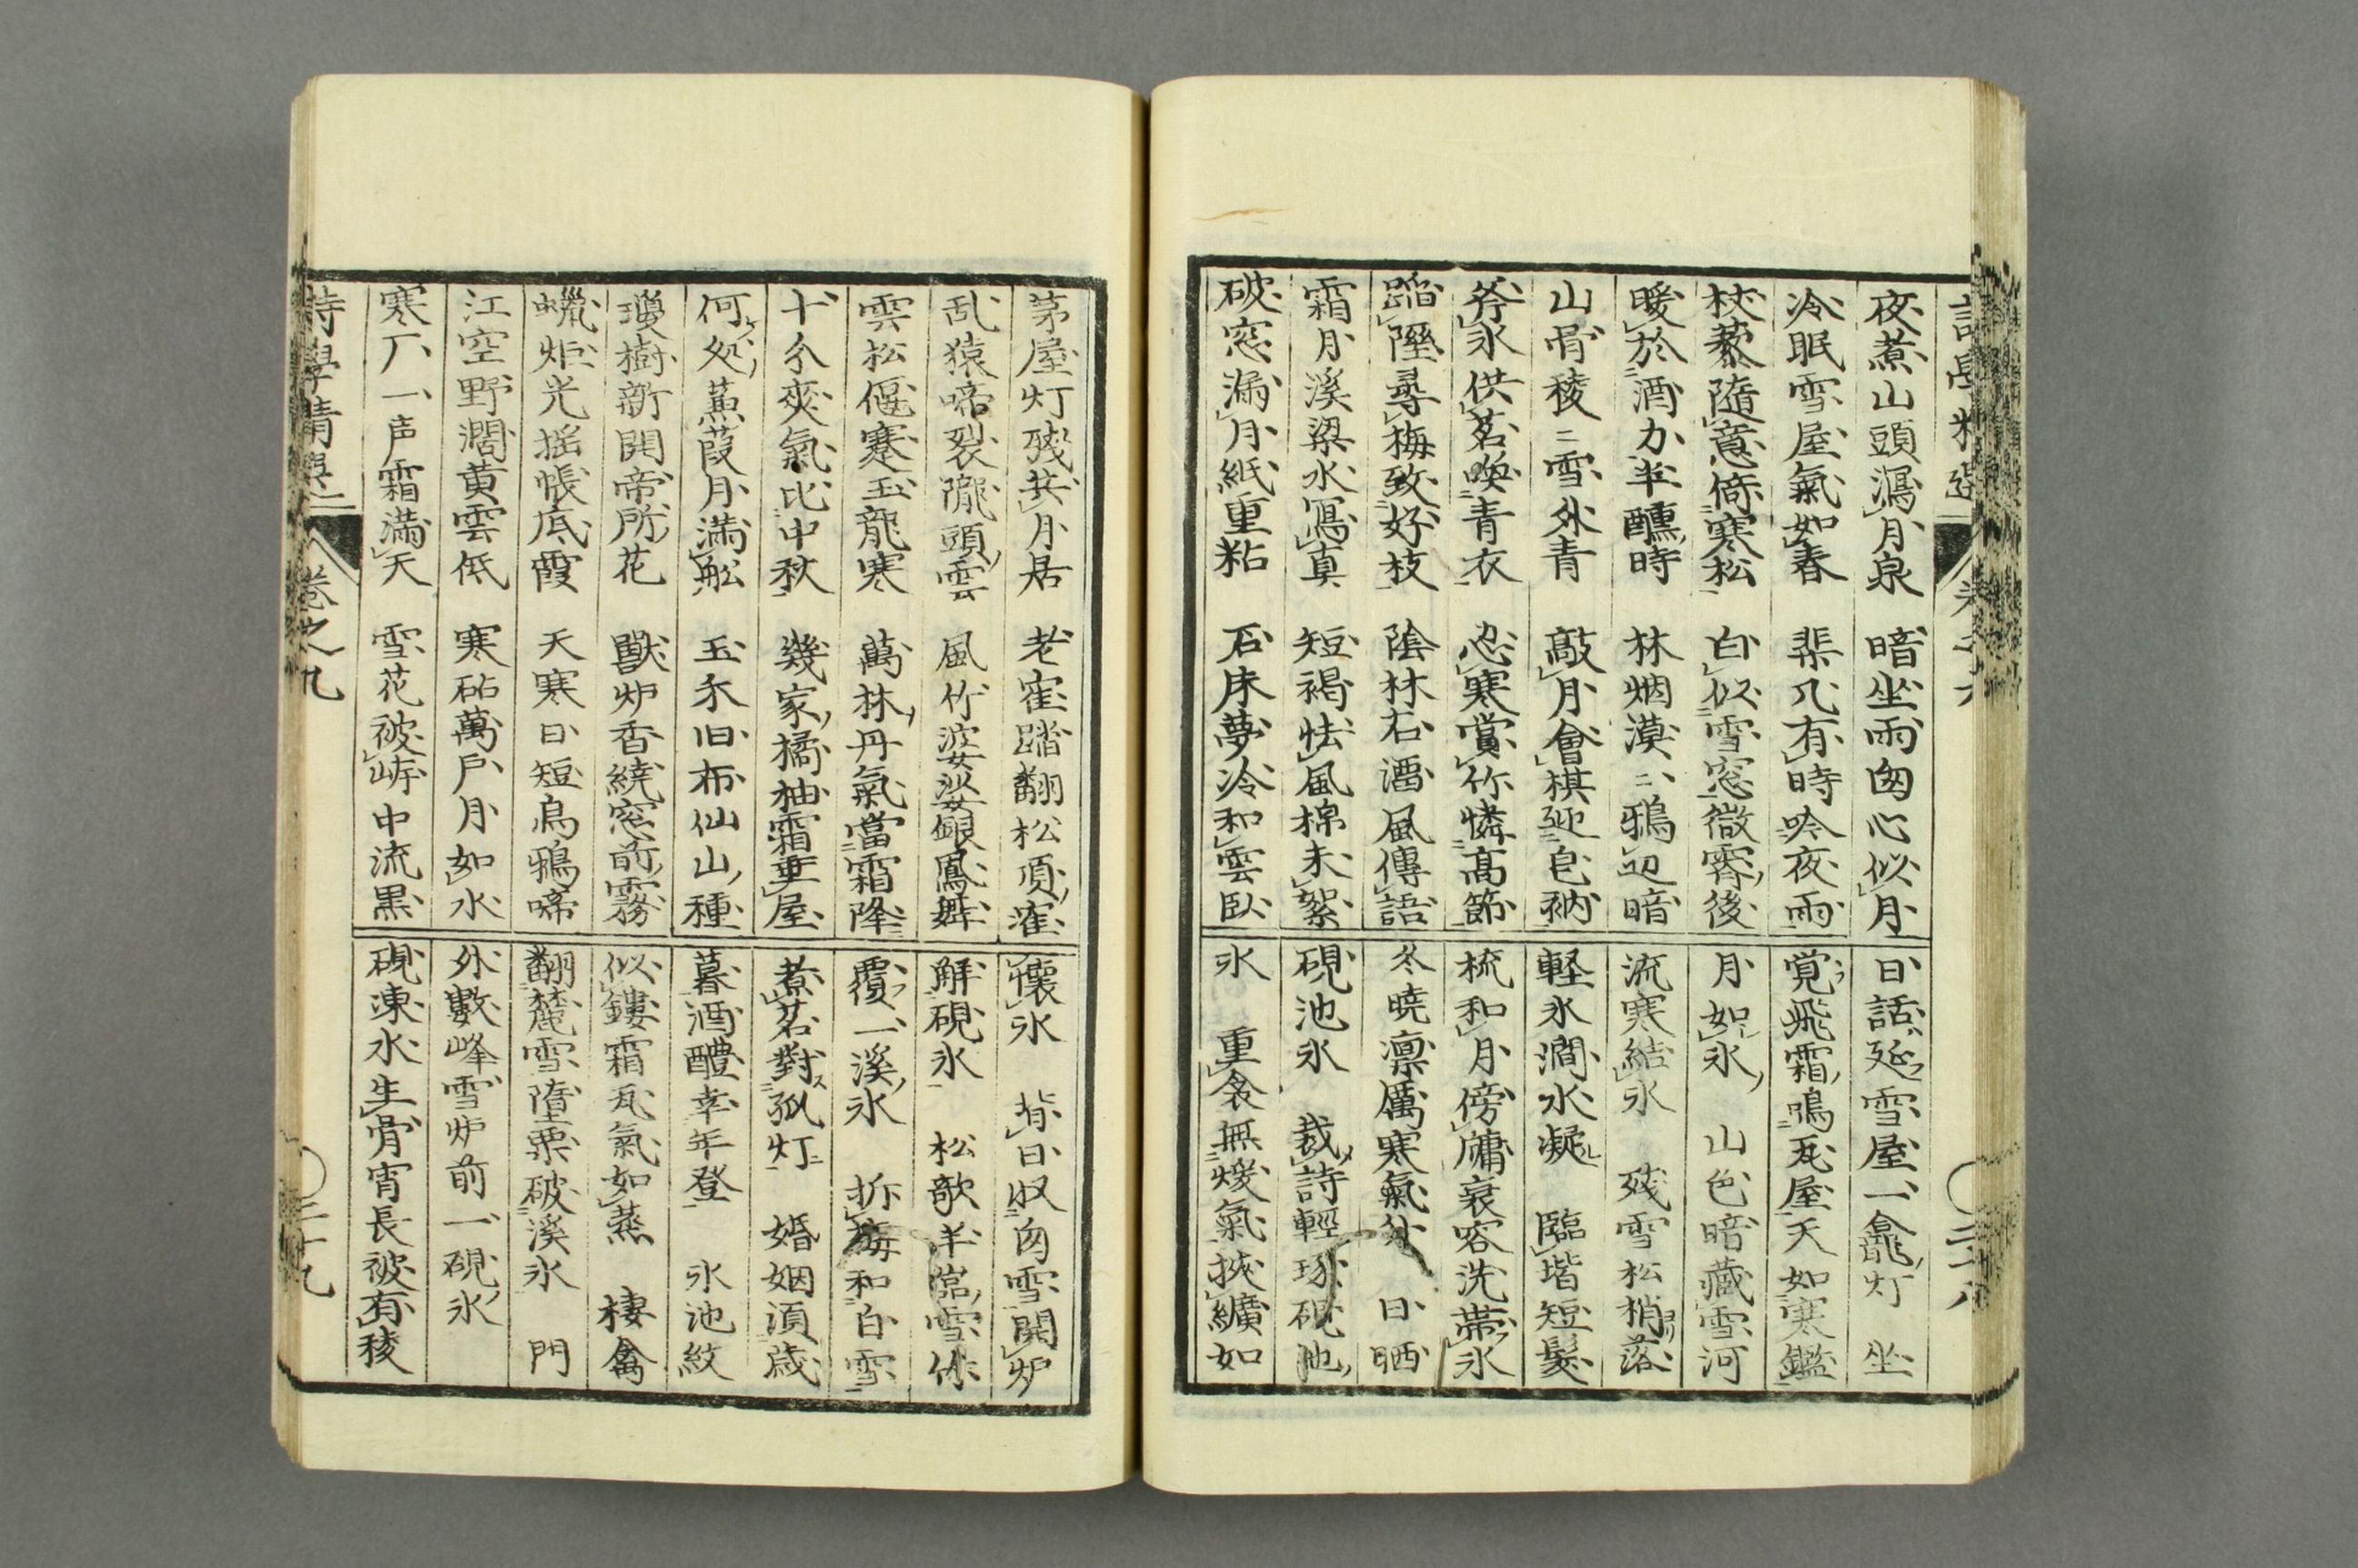 夜煮山頭瀉月泉　暗坐雨囱心似月
冷眠雪屋氣如春　棐几有時吟夜雨
杖藜隨意倚寒松　白似雪窓微霽後
暖於酒力半醺時　林烟漠〻鴉辺暗
山骨稜〻雪外青　敲月會棋延皀衲
斧氷供茗喚青衣　忍寒賞竹憐高節
蹈隥尋梅致好枝　陰林右酒風傳語
霜月溪梁水冩真　短褐怯風棉未絮
破窓漏月紙重粘　石床夢冷和雲臥
日話延雪屋一龕灯　坐
覚飛霜鳴瓦屋天如寒鑑
月如氷　山色暗藏雪河
流寒結氷　残雪松梢落
軽氷澗水凝　臨堦短髮
梳和月傍牗衰容洗帯氷
冬曉凛厲寒氣外　日晒
硯池氷　裁詩輕琢硯池
氷　重衾無煖氣挾纊如
卷之九
二十八
茅屋灯残共月居　老寉踏翻松頂寉
乱猿啼裂隴頭雲　風竹婆娑銀鳳舞
雲松偃蹇玉龍寒　萬林丹氣當霜降
十分爽氣比中秋　幾家橘柚霜垂屋
何処蒹葭月滿舩　玉禾旧布仙山種
瓊樹新開帝所花　獸炉香繞窓前霧
蠟炬光揺帳底霞　天寒日短烏鴉啼
江空野濶黄雲低　寒砧萬戸月如水
寒厂一声霜滿天　雪花被岸中流黒
懐氷　背日収囱雪開炉
解硯氷　松歌羊臨雪作
覆一溪氷　拆梅和白雪
煮茗對孤灯　婚姻湏歳
暮酒醴幸年登　氷池紋
似鏤霜瓦氣如蒸　棲禽
翻麓雪墮栗破溪氷　門
外數峰雪炉前一硯氷
硯凍水生骨宵長被有稜
詩學精選　卷之九
二十九